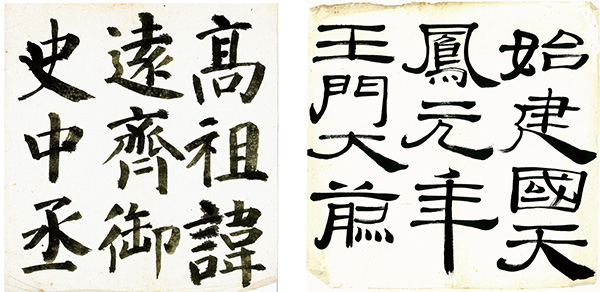 髙祖諱
遠齊御
史中丞
始建國天
鳳元年
王門大煎